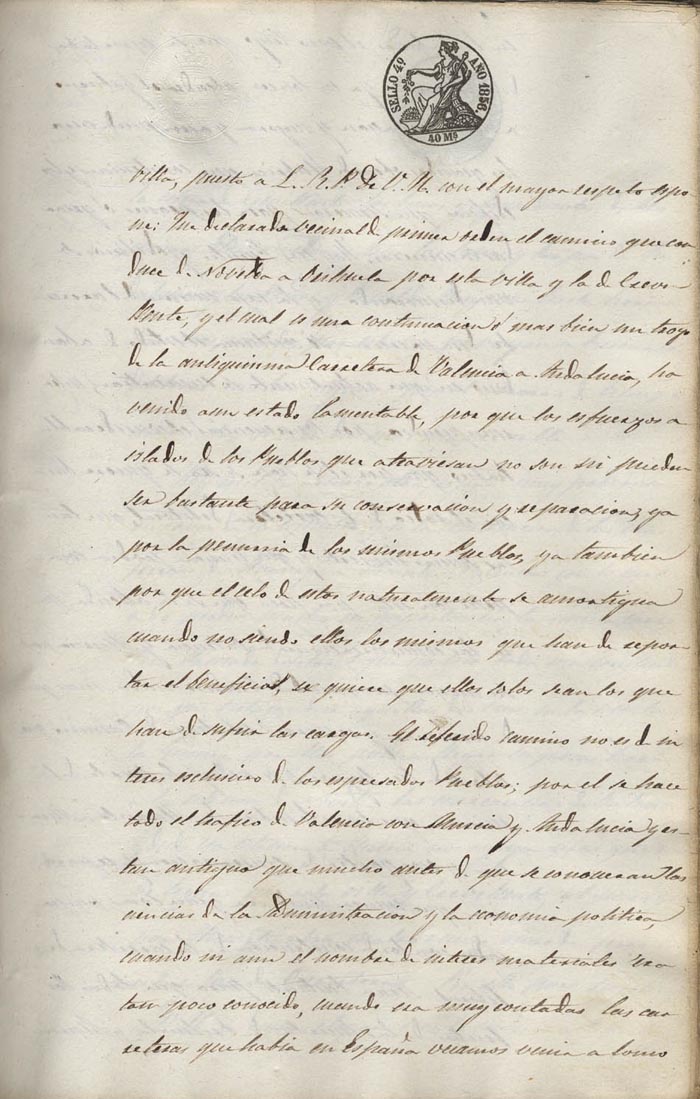 SELLO 4º AÑO 1856.
40 Ms
villa, puesto a L. R. P. de V. M. con el mayor respeto espo
ne: Que declarado vecinal de primer orden el camino que con
duce de Novelda a Orihuela por esta villa y la de Crevi
llente, y el cual es una continuacion ó mas bien un trozo
de la antiquisima Carretera de Valencia a Andalucia, ha
venido a un estado lamentable, por que los esfuerzos a
islados de los Pueblos que atraviesan no son ni pueden
ser bastante para su conservacion y reparacion, ya
por la penuria de los mismos Pueblos, ya tambien
por que el celo de estos naturalmente se amortigua
cuando no siendo ellos los mismos que han de repor
tar el beneficio, se quiere que ellos solos sean los que
han de sufrir las cargas. El referido camino no es de in
teres esclusivo de los espresados Pueblos; por el se hace
todo el trafico de Valencia con Murcia y Andalucia y es
tan antiguo que mucho antes de que se conocieran las
ciencias de la Administracion y la economia politica,
cuando ni aun el nombre de interes materiales era
tam poco conocido, cuando era muy contadas las car
reteras que habia en España venia a lomo